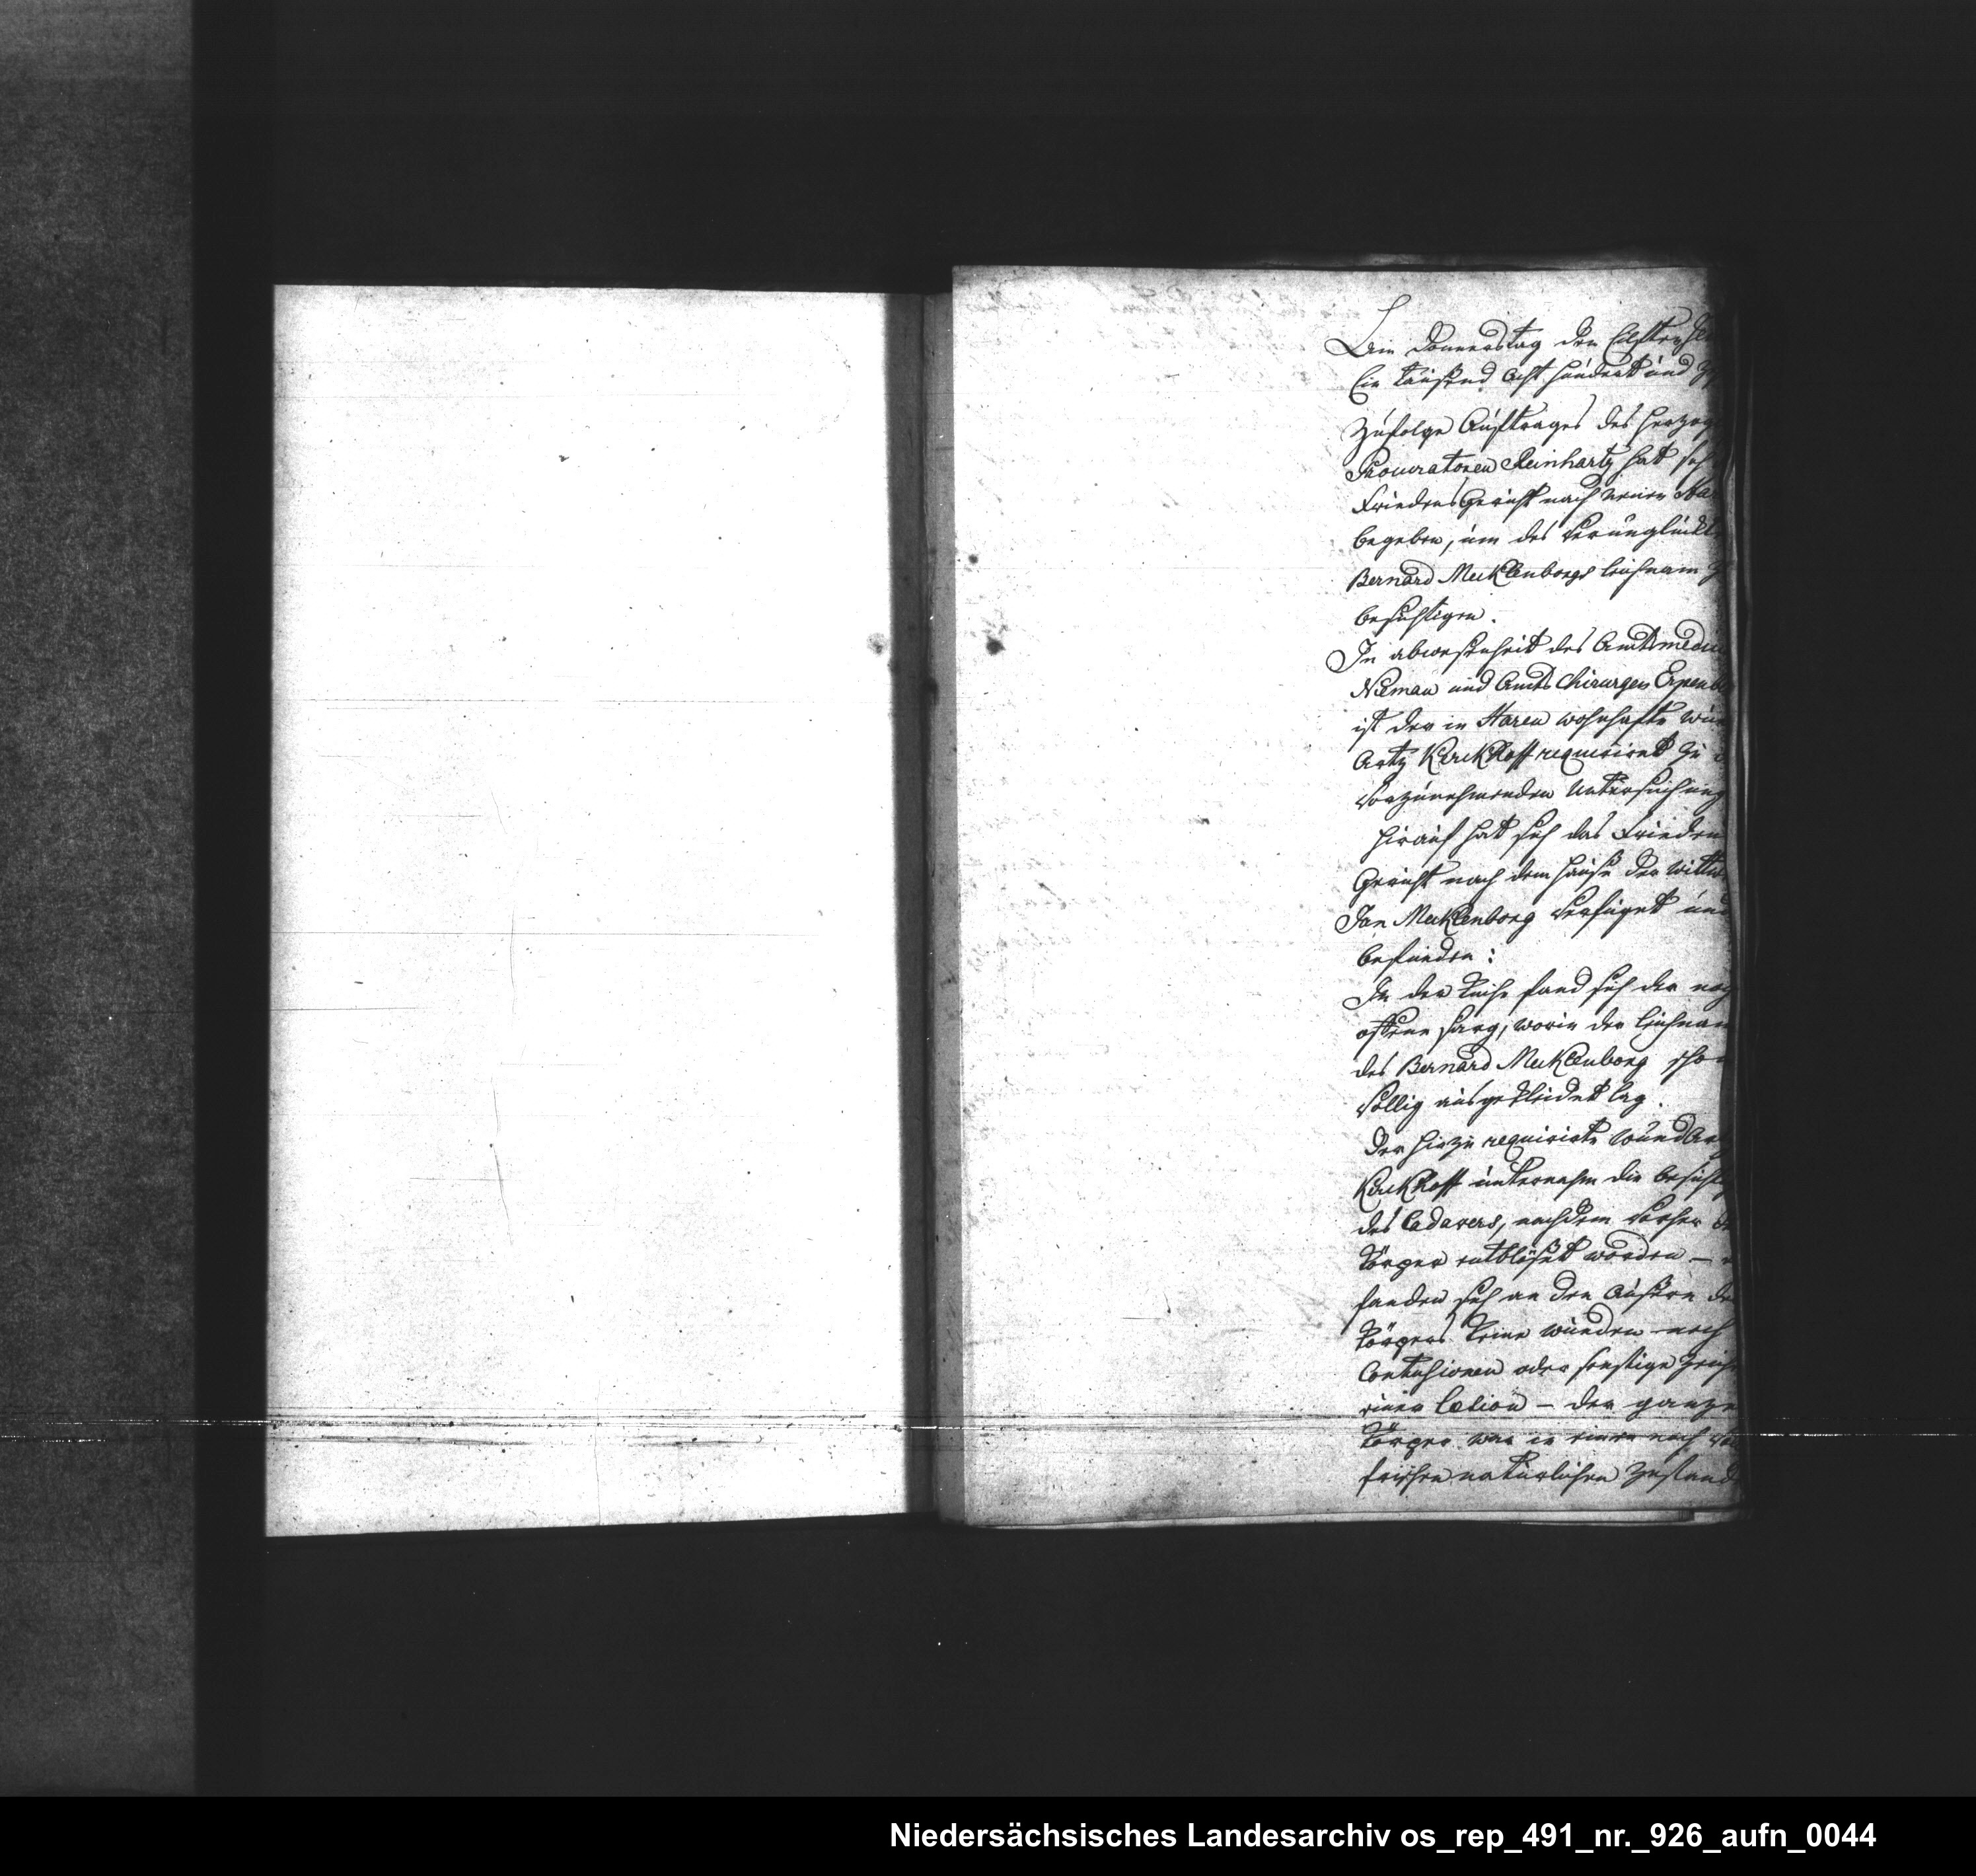 Am Donnerstag den Eilften
Ein tausend acht hundert und
Zufolge Auftrages des Herzog
Procuratoren Reinhartz hat sich
Friedens Gericht nach neuen Har
begeben, um des verunglückt
Bernard Mecklenborgs Leichnam
besichtigen.
In abwesenheit des Amtsmedici
Nieman und Amts Chirurgen Expenb
ist der in Haren wohnhafte Wun
Artz Kerckhoff requiriret zu
vorzunehmenden Untersuchung
Hirauf hat sich das Friedens
Gericht nach dem Hause der Wittw
Jan Mecklenborg verfüget und
befunden:
In der Küche fand sich der noch
offene Sarg, worin der Leichnam
des Bernard Mecklenborg schon
völlig ausgekleidet lag.
Der hiezu requirirte Wund Ar
Kerckhoff unternahm die Besicht
des Cadavers, nachdem vorher
Körper entblößet worden —
fanden sich an den Äußern de
Körpers keine wunden noch
Contusionen oder sonstige Zeich
einer Læsion — der ganze
Körper war in einem noch
frischen natürlichen Zustand
Niedersächsisches Landesarchiv os_rep_491_nr._926_aufn_0044